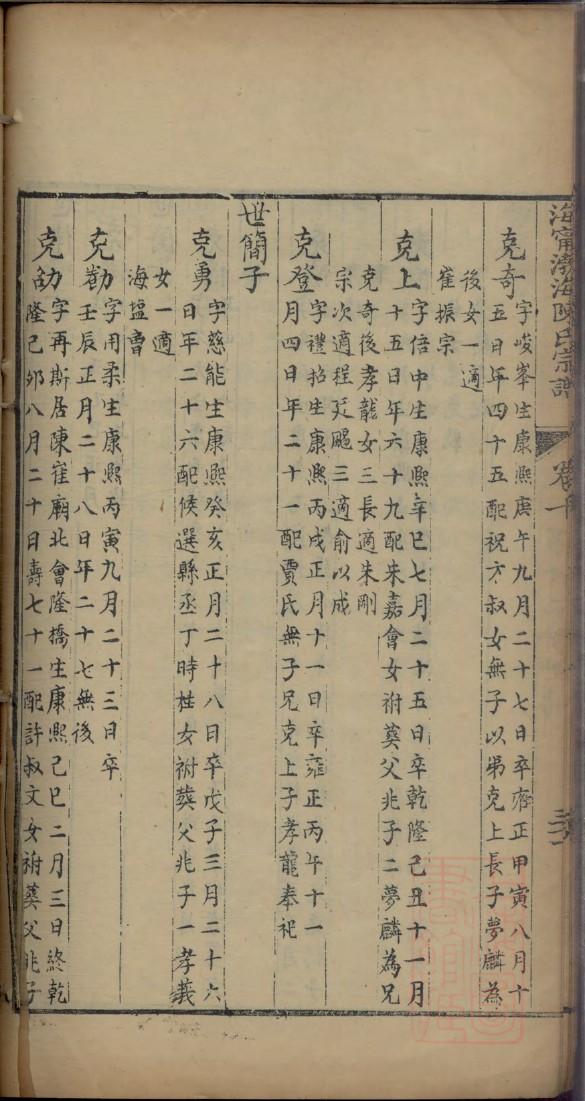 海甯渤海陳氏宗譜
卷十
克奇
字峻峯生康熙庚午九月二十七日卒雍正甲寅八月十
五日年四十五配祝方叔女無子以弟克上長子夢麟為
後女一適
崔振宗
克上
字倍中生康熙辛巳七月二十五日卒乾隆己丑十一月
十五日年六十九配朱嘉會女祔葬父兆子二夢麟為兄
克奇後孝龍女三長適朱剛
宗次適程廷颺三適俞以成
克登
字禮招生康熙丙戌正月十一日卒雍正丙午十一
月四日年二十一配賈氏無子兄克上子孝龍奉祀
世簡子
克勇
字慈能生康熙癸亥正月二十八日卒戊子三月二十六
日年二十六配候選縣丞丁時桂女祔葬父兆子一孝義
女一適
海塩曹
克勷
字用柔生康熙丙寅九月二十三日卒
壬辰正月二十八日年二十七無後
克劭
字再斯居陳崔廟北會隆橋生康熙己巳二月三日終乾
隆己夘八月二十日壽七十一配許叔文女祔葬父兆子